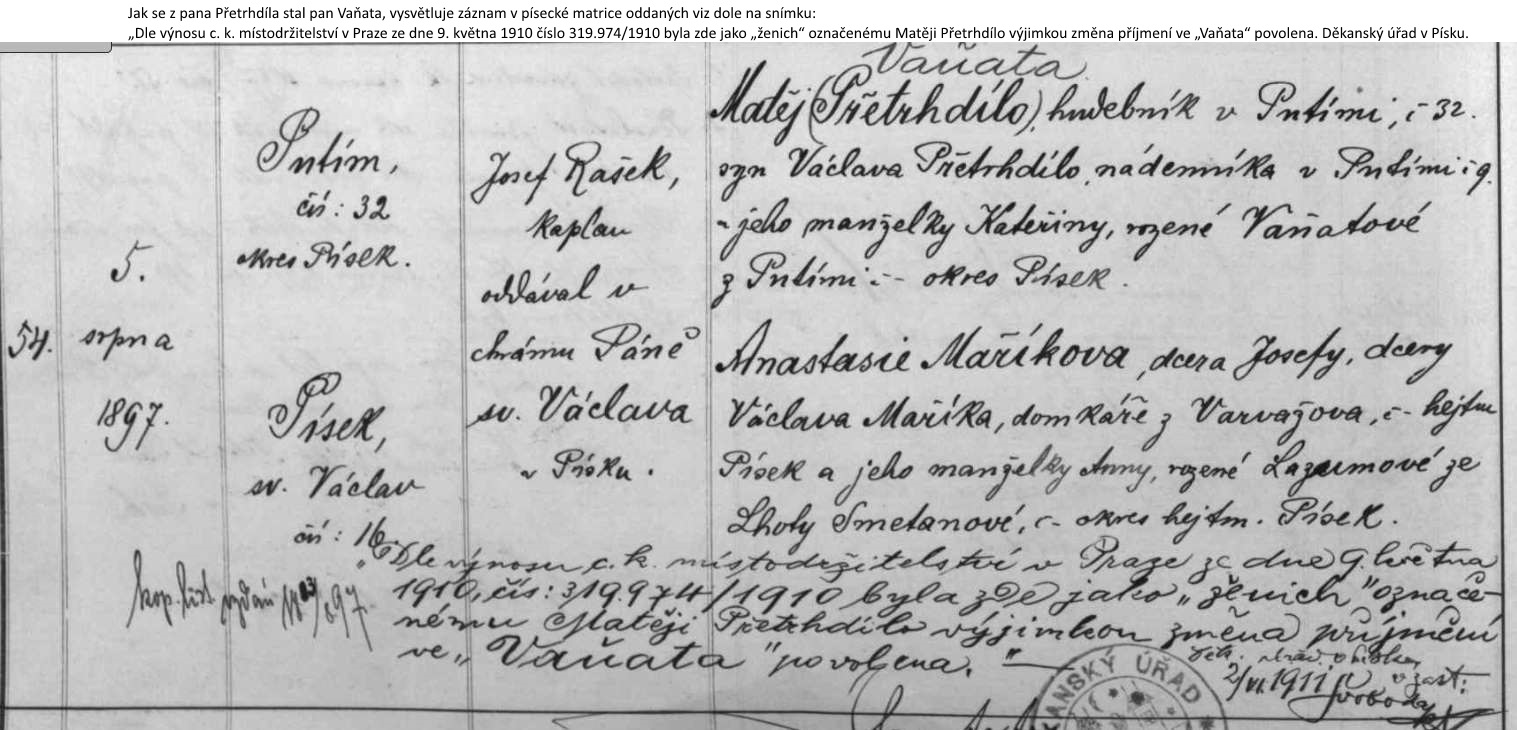 Jak se z pana Přetrhdíla stal pan Vaňata, vysvětluje záznam v písecké matrice oddaných viz dole na snímku:
„Dle výnosu c. k. místodržitelství v Praze ze dne 9. května 1910 číslo 319.974/1910 byla zde jako „ženich“ označenému Matěji Přetrhdílo výjimkou změna příjmení ve „Vaňata“ povolena. Děkanský úřad v Písku.
54.
5.
srpna
1897.
Putím,
čís: 32
okres Písek.
Písek,
sv. Václav
čís: 16.
Josef Rašek,
kaplan
oddával v
chrámu Páně
sv. Václava
v Písku.
Vaňata
Matěj (Přetrhdílo), hudebník v Putimi, č 32.
syn Václava Přetrhdílo, nádenníka v Putimi č 9.
a jeho manželky Kateřiny, rozené Vaňatové
z Putimi č – okres Písek.
Anastasie Maříkova, dcera Josefy, dcery
Václava Maříka, domkáře z Varvažova, č – hejtm
Písek a jeho manželky Anny, rozené
ze
Lhoty Smetanové, č – okres hejtm. Písek.
„Dle výnosu c. k. místodržitelství v Praze ze dne 9. května
1910, čís: 319.974/1910 byla zde jako „ženich" označe-
nému Matěji Přetrhdílo výjimkou změna příjmení
ve „Vaňata" povolena."
kop. list vydán
2/VI 1911
v zast:
Svoboda
KANSKÝ ÚŘAD